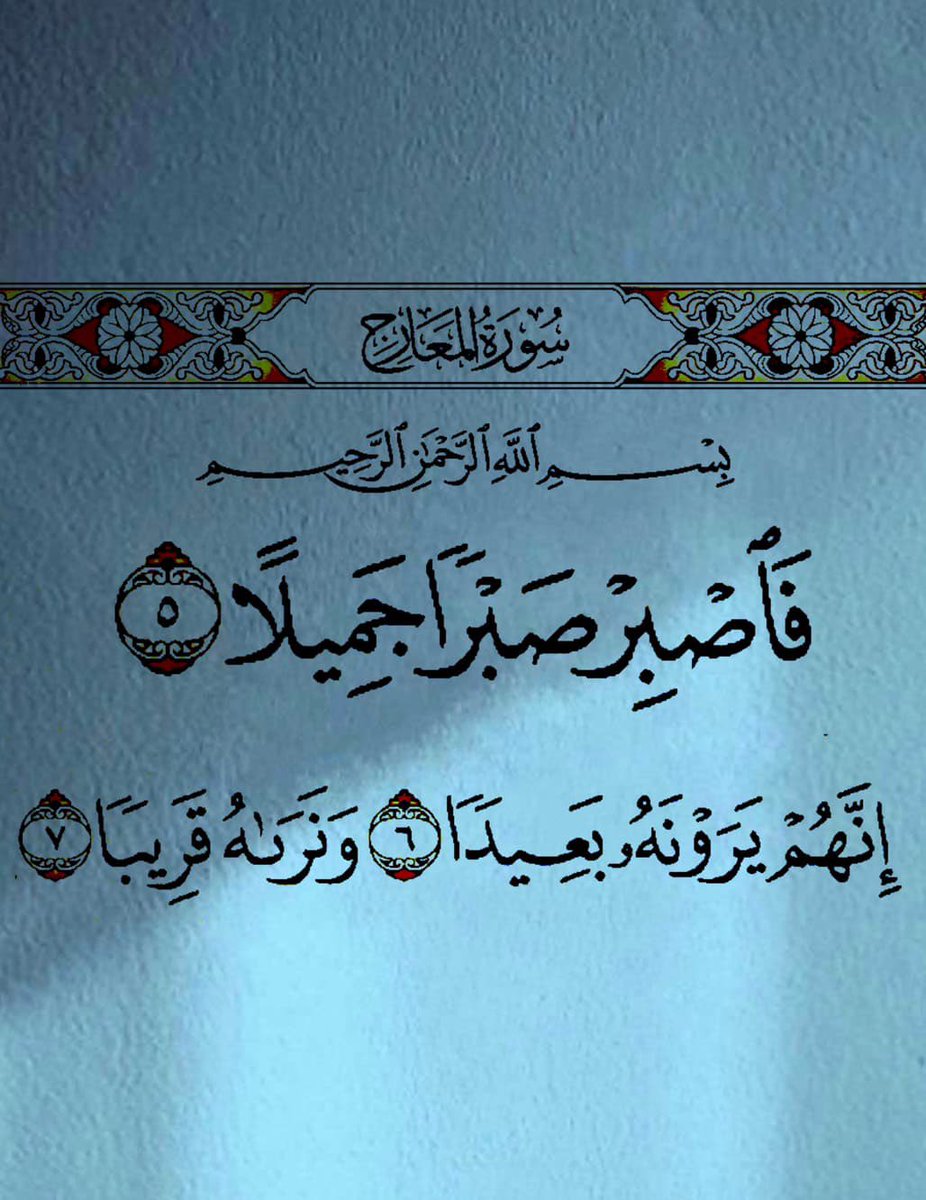 سُورَةُ المَعَارِجِ
بِسْمِ ٱللَّهِ ٱلرَّحْمَٰنِ ٱلرَّحِيمِ
فَٱصْبِرْ صَبْرًا جَمِيلًا ٥
إِنَّهُمْ يَرَوْنَهُۥ بَعِيدًا ٦ وَنَرَىٰهُ قَرِيبًا ٧